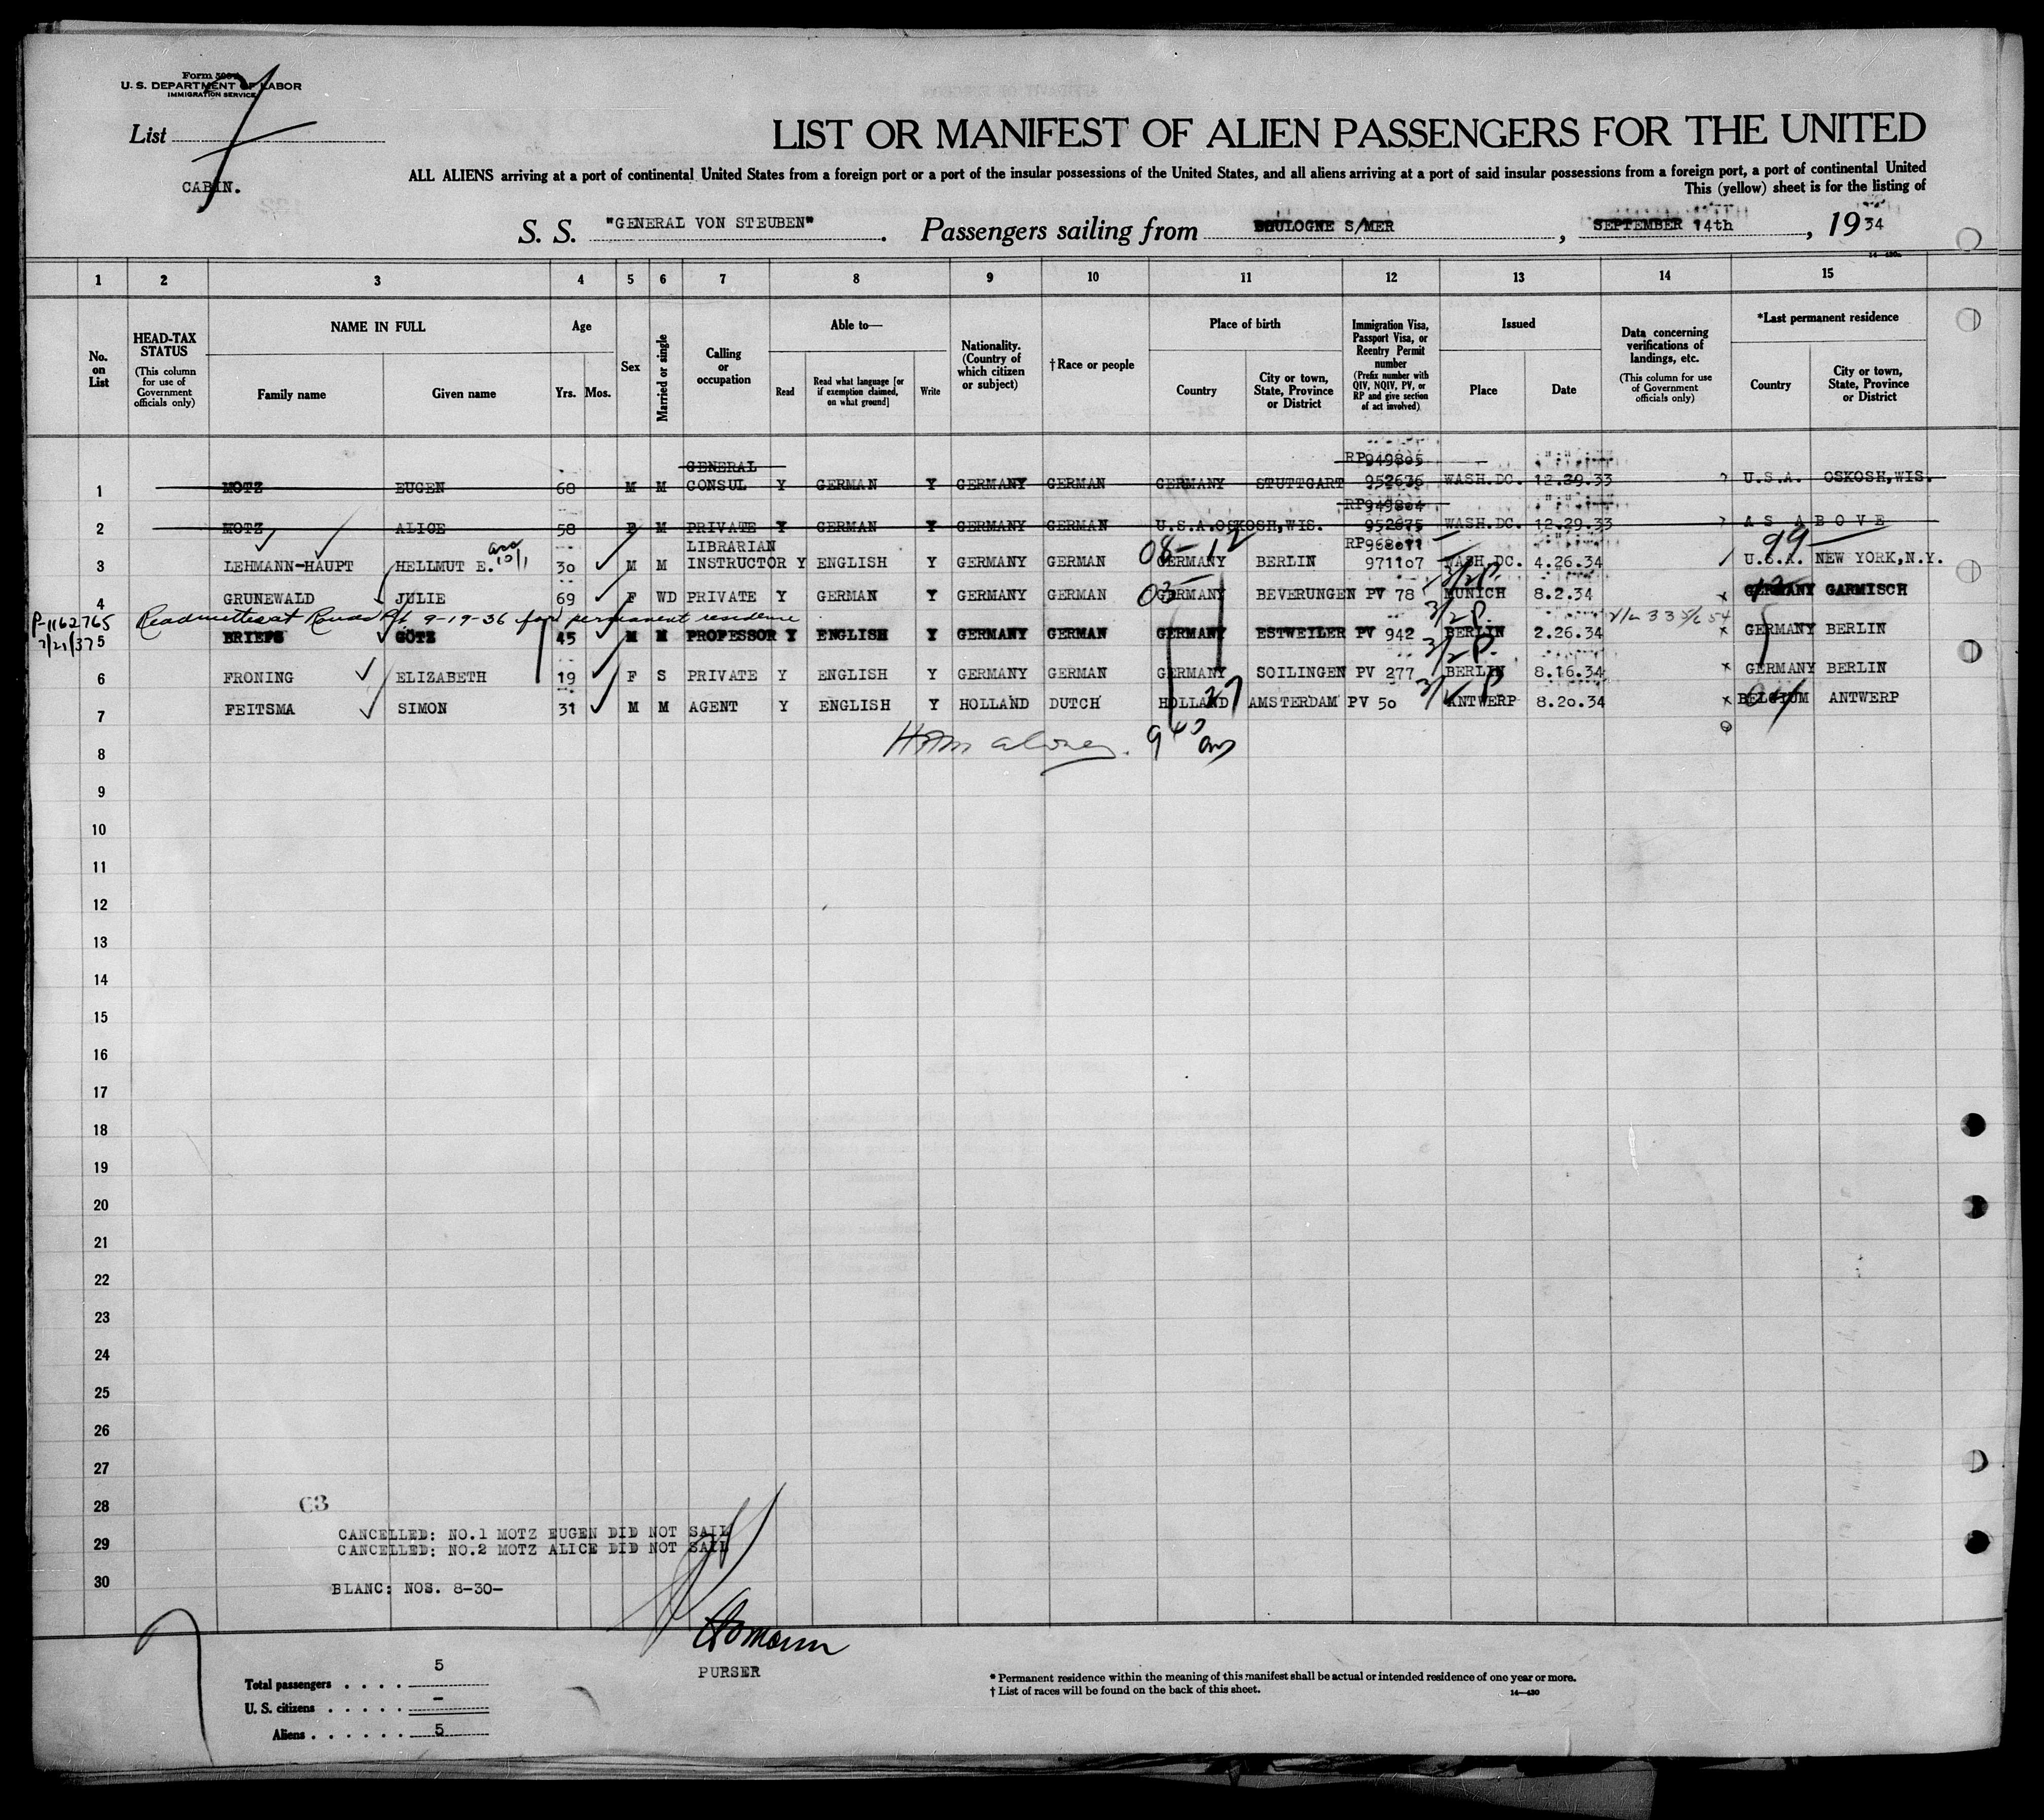 Form 500
U. S. DEPARTMENT OF LABOR
IMMIGRATION SERVICE
List 7
CABIN.
LIST OR MANIFEST OF ALIEN PASSENGERS FOR THE UNITED
ALL ALIENS arriving at a port of continental United States from a foreign port or a port of the insular possessions of the United States, and all aliens arriving at a port of said insular possessions from a foreign port, a port of continental United
This (yellow) sheet is for the listing of
S. S. "GENERAL VON STEUBEN". Passengers sailing from BOULOGNE S/MER, SEPTEMBER 14th, 1934
14—430
1 2 3 4 5 6 7 8 9 10 11 12 13 14 15
No. on List
HEAD-TAX STATUS
(This column for use of Government officials only)
NAME IN FULL
Family name
Given name
Age
Yrs. Mos.
Sex
Married or single
Calling or occupation
Able to—
Read
Read what language [or if exemption claimed, on what ground]
Write
Nationality. (Country of which citizen or subject)
†Race or people
Place of birth
Country
City or town, State, Province or District
Immigration Visa, Passport Visa, or Reentry Permit number
(Prefix number with QIV, NQIV, PV, or RP and give section of act involved)
Issued
Place
Date
Data concerning verifications of landings, etc.
(This column for use of Government officials only)
*Last permanent residence
Country
City or town, State, Province or District
GENERAL RP949805
1 MOTZ EUGEN 60 M M CONSUL Y GERMAN Y GERMANY GERMAN GERMANY STUTTGART 952676 WASH.DC. 12.29.33 U.S.A. OSKOSH,WIS.
RP949804
2 MOTZ ALICE 58 F M PRIVATE Y GERMAN Y GERMANY GERMAN U.S.A.OSKOSH,WIS. 952675 WASH.DC. 12.29.33 AS ABOVE
LIBRARIAN 08-12 RP968011 99
3 LEHMANN-HAUPT HELLMUT E. 10/1 30 M M INSTRUCTOR Y ENGLISH Y GERMANY GERMAN GERMANY BERLIN 971107 WASH.DC. 4.26.34 U.S.A. NEW YORK,N.Y.
03 3/2P.
4 GRUNEWALD JULIE 69 F WD PRIVATE Y GERMAN Y GERMANY GERMAN GERMANY BEVERUNGEN PV 78 MUNICH 8.2.34 GERMANY GARMISCH
P-1162765 Readmitted at Rouses Pt 9-19-36 for permanent residence 3/2P.
7/21/37 5 BRIEFS GÖTZ 45 M M PROFESSOR Y ENGLISH Y GERMANY GERMAN GERMANY ESTWEILER PV 942 BERLIN 2.26.34 GERMANY BERLIN
3/2P.
6 FRONING ELIZABETH 19 F S PRIVATE Y ENGLISH Y GERMANY GERMAN GERMANY SOILINGEN PV 277 BERLIN 8.16.34 GERMANY BERLIN
7 FEITSMA SIMON 31 M M AGENT Y ENGLISH Y HOLLAND DUTCH HOLLAND 27 AMSTERDAM PV 50 ANTWERP 8.20.34 BELGIUM 04 ANTWERP
8
9
10
11
12
13
14
15
16
17
18
19
20
21
22
23
24
25
26
27
28 C3
CANCELLED: NO.1 MOTZ EUGEN DID NOT SAIL
29
CANCELLED: NO.2 MOTZ ALICE DID NOT SAIL
30
BLANC: NOS. 8-30-
Homann
PURSER
Total passengers . . . . 5
U. S. citizens . . . . . –
Aliens . . . . . . 5
* Permanent residence within the meaning of this manifest shall be actual or intended residence of one year or more.
† List of races will be found on the back of this sheet.
14—430